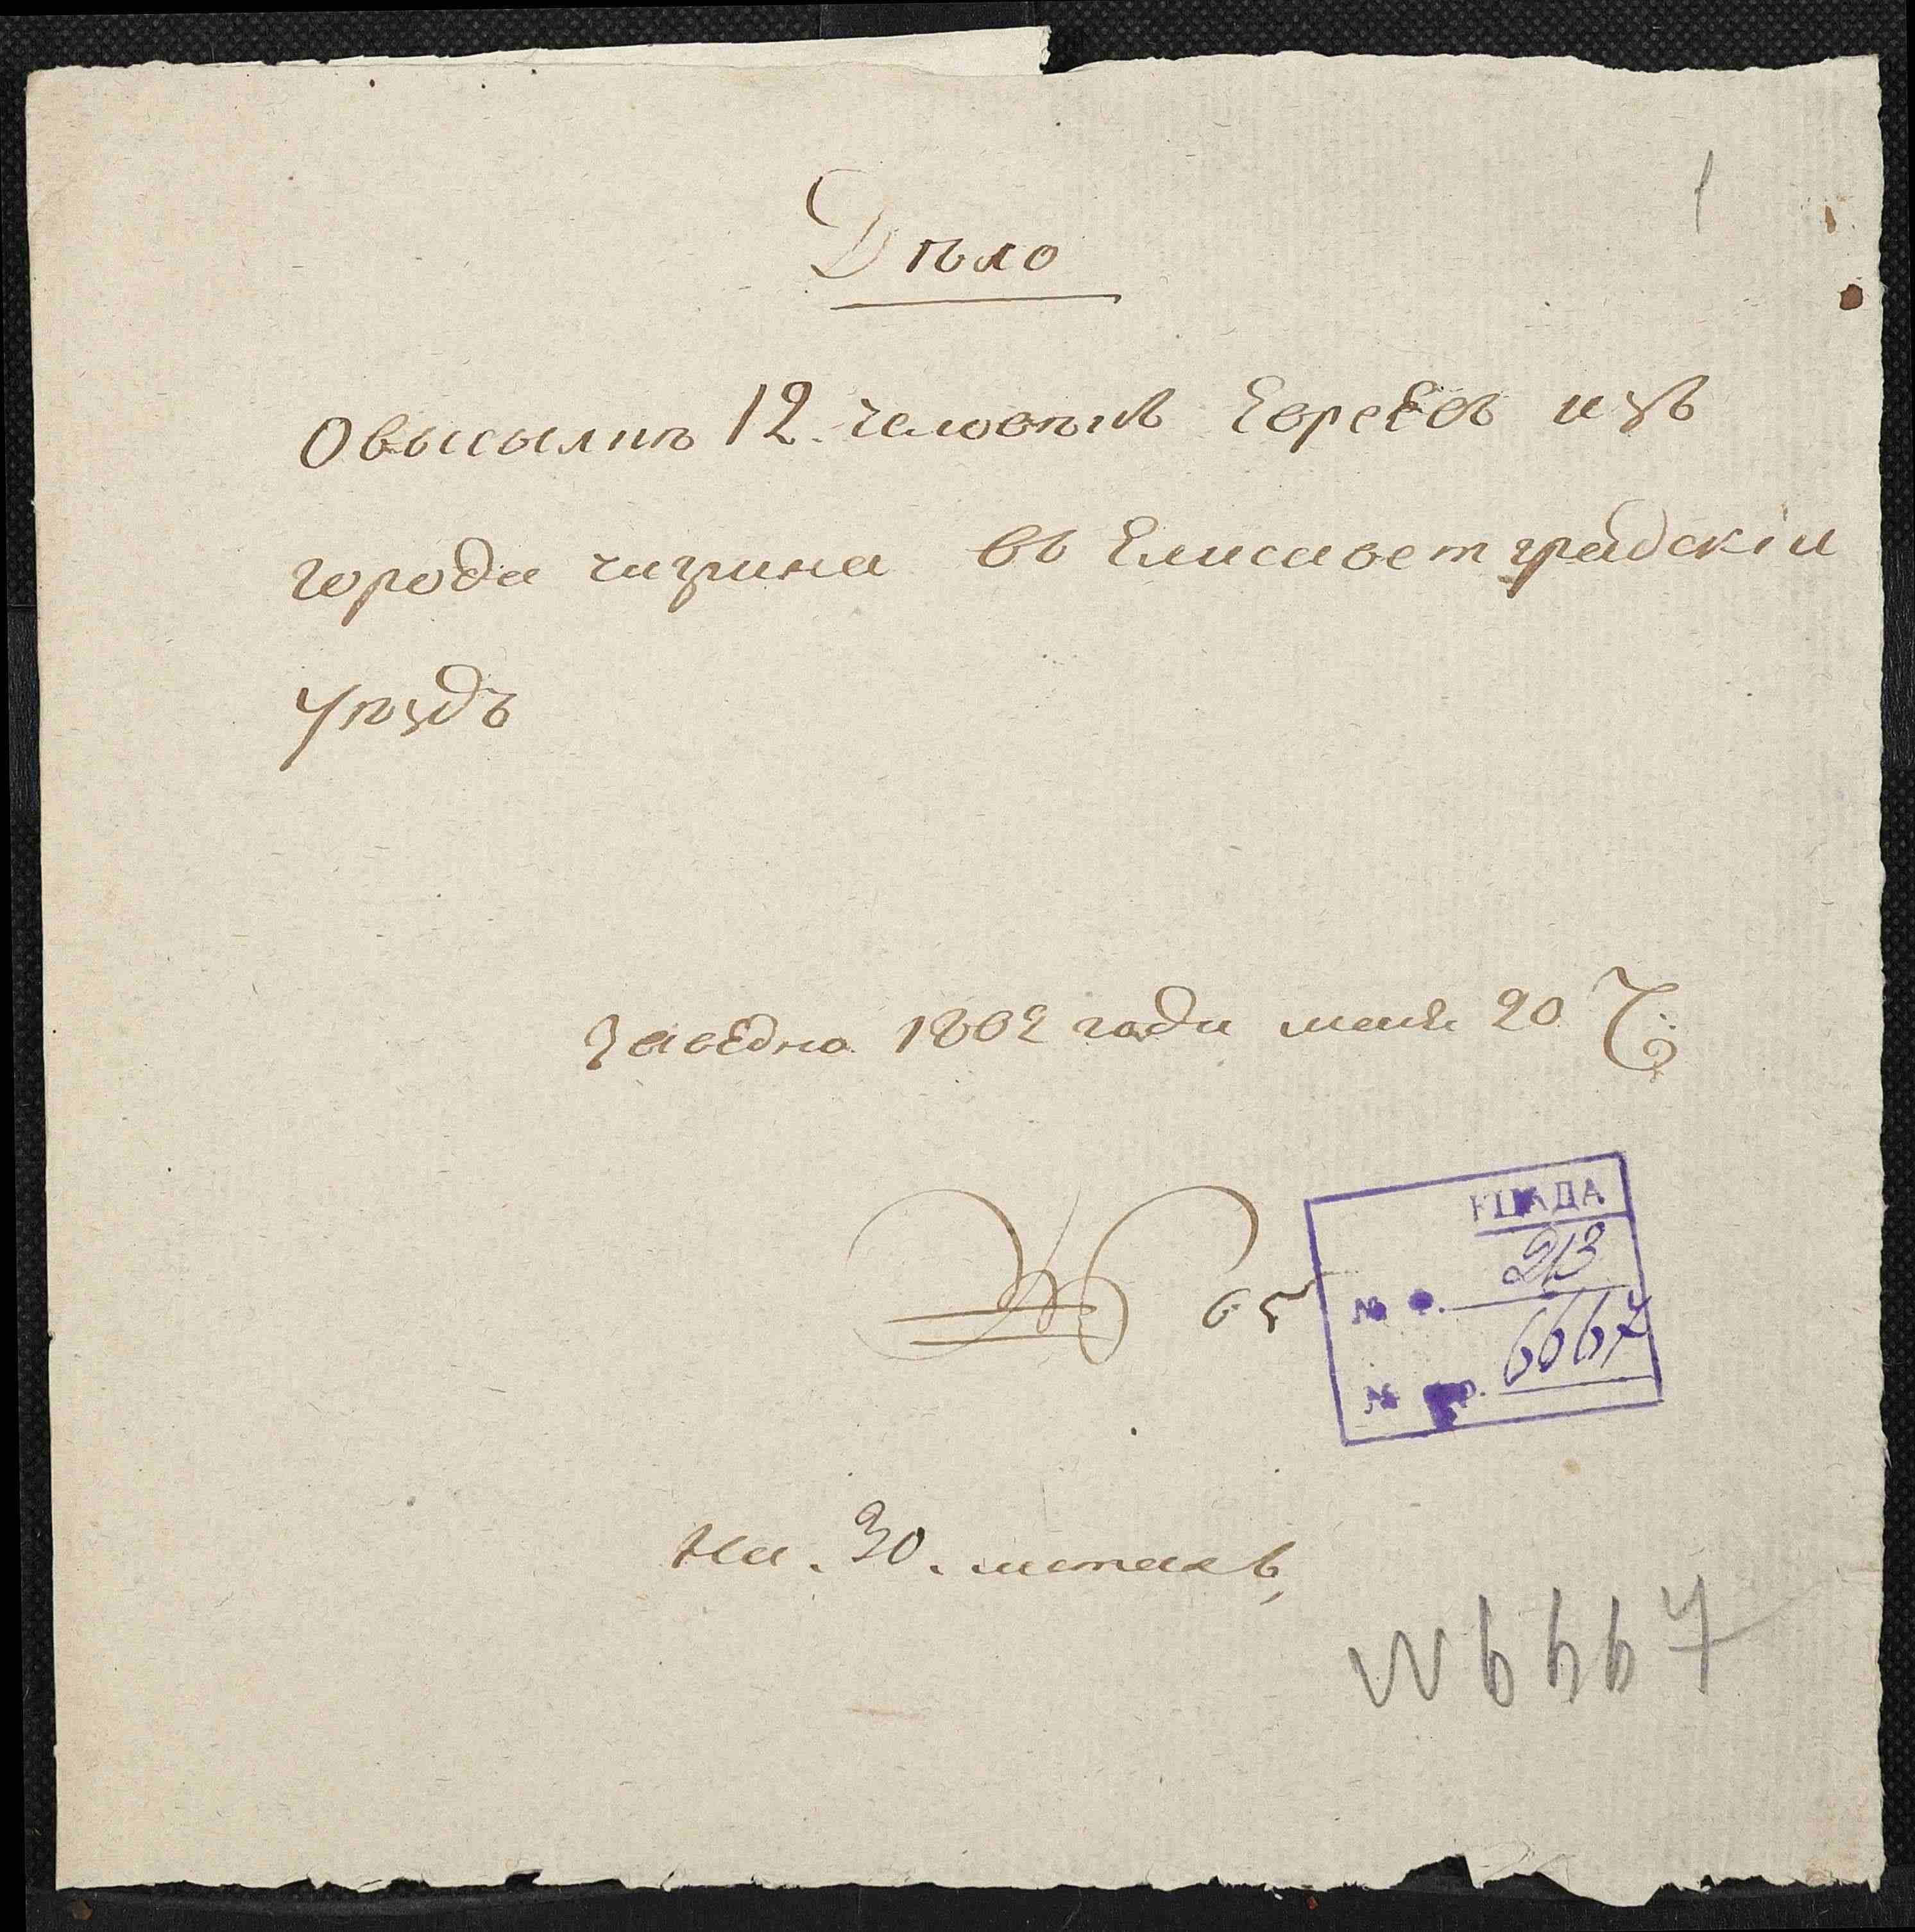 1
Дѣло
О высылкѣ 12. человѣкъ Евреевъ изъ
города чигрина въ Елисаветградскіи
уѣздъ
Заведно 1802 года маия 20
65
КЦАДА
№ Ф. 213
№ 6667
На. 30. листахъ
N 6667